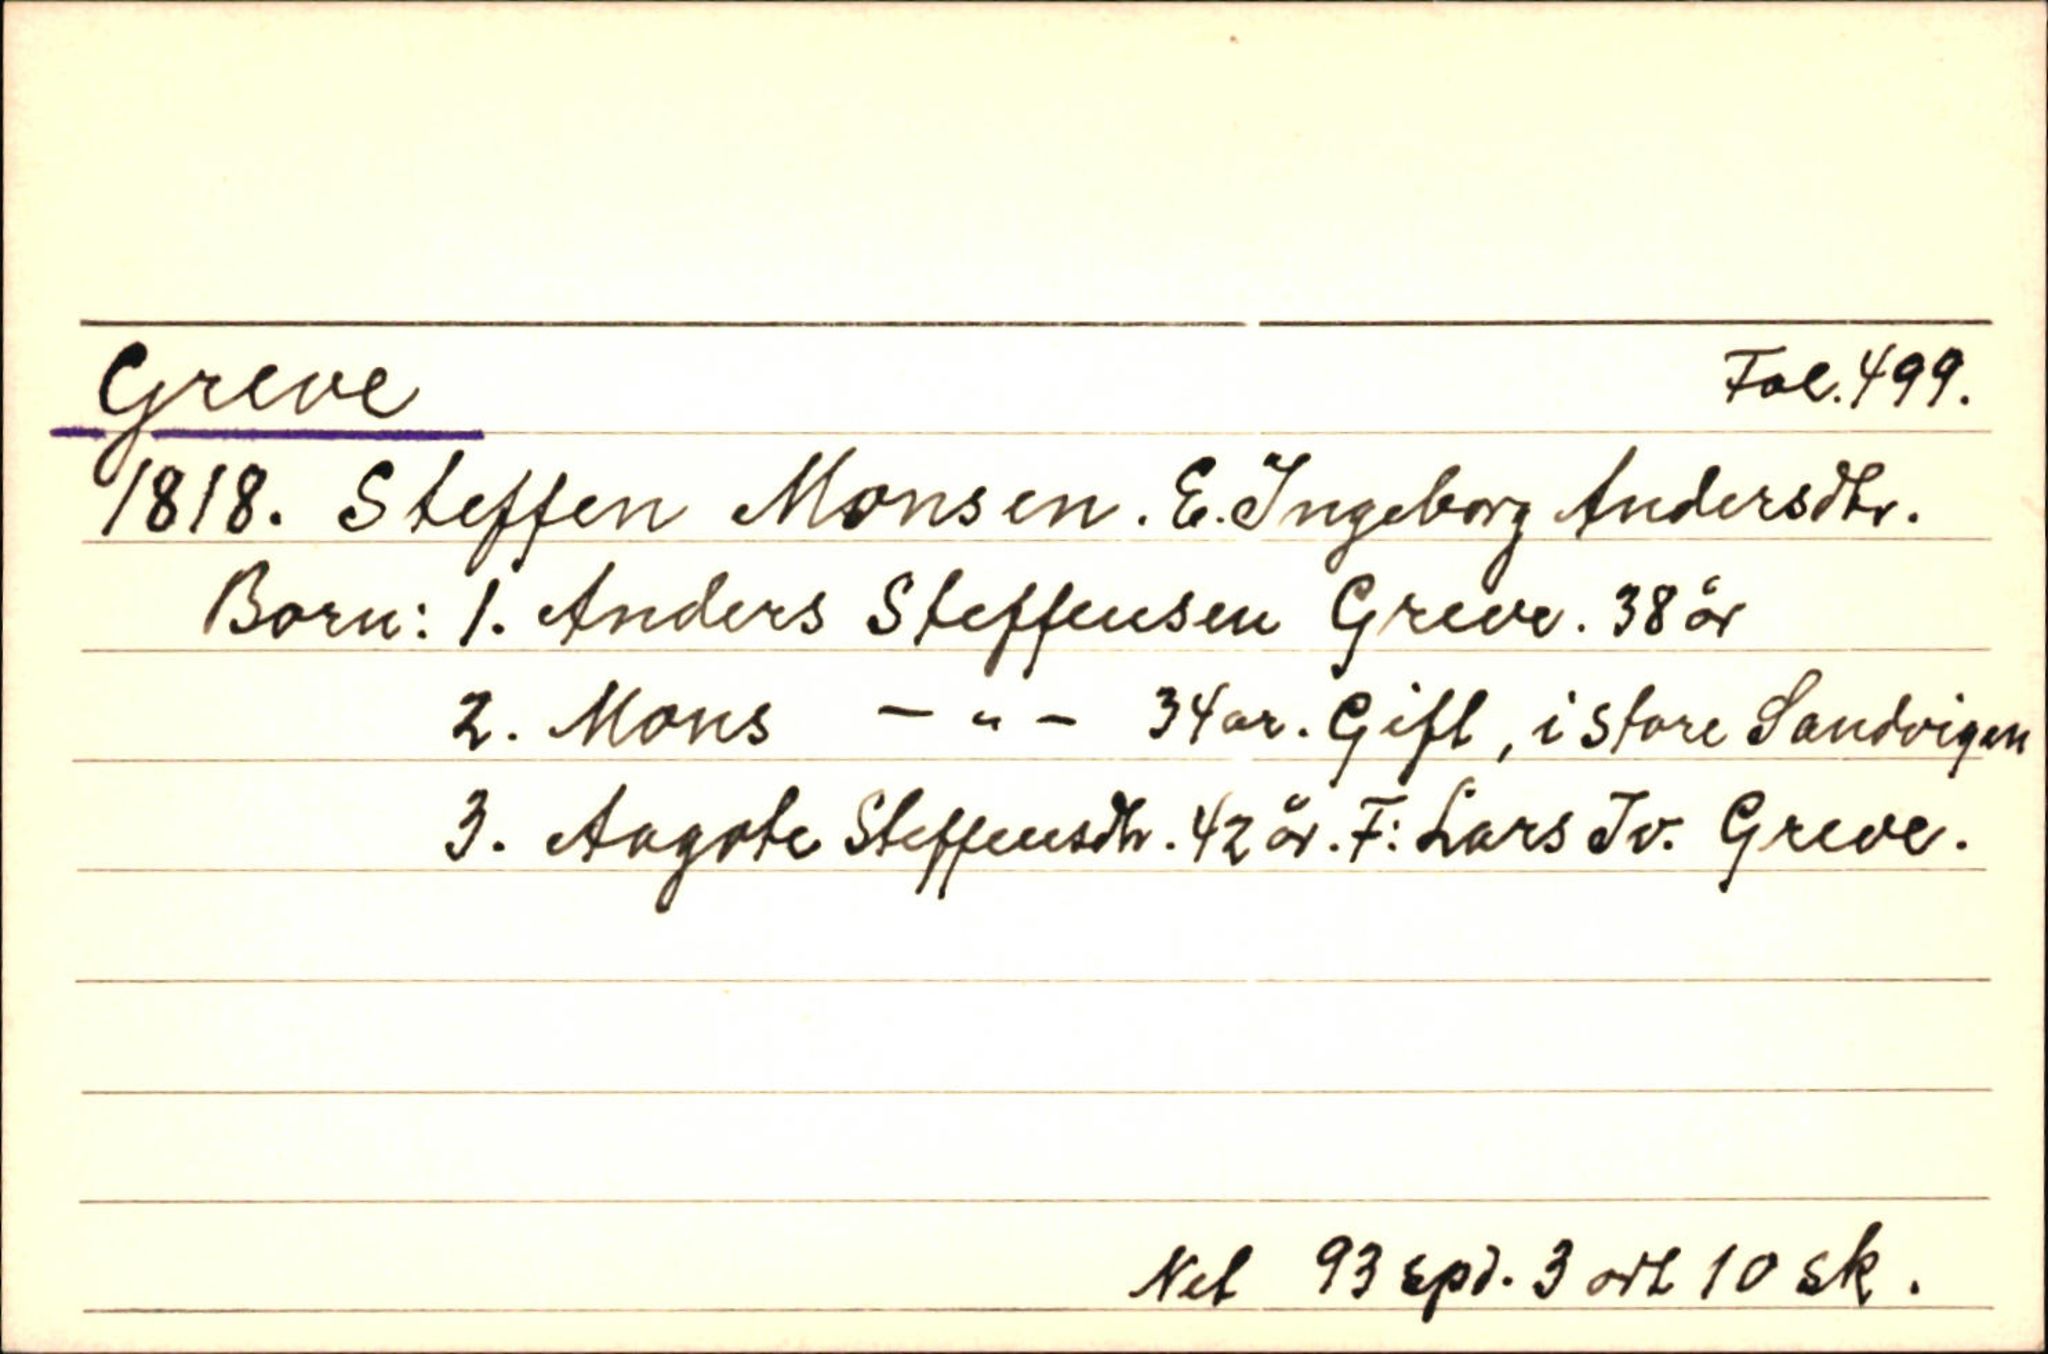 Greve Fol. 499.
1818. Steffen Monsen. E. Ingeborg Andersdtr.
Born: 1. Anders Steffensen Greve. 38 år
2. Mons — " — 34 år. Gift, i store Sandvigen
3. Aagote Steffensdtr. 42 år. F: Lars Iv. Greve.
Net 93 spd. 3 ort 10 sk.